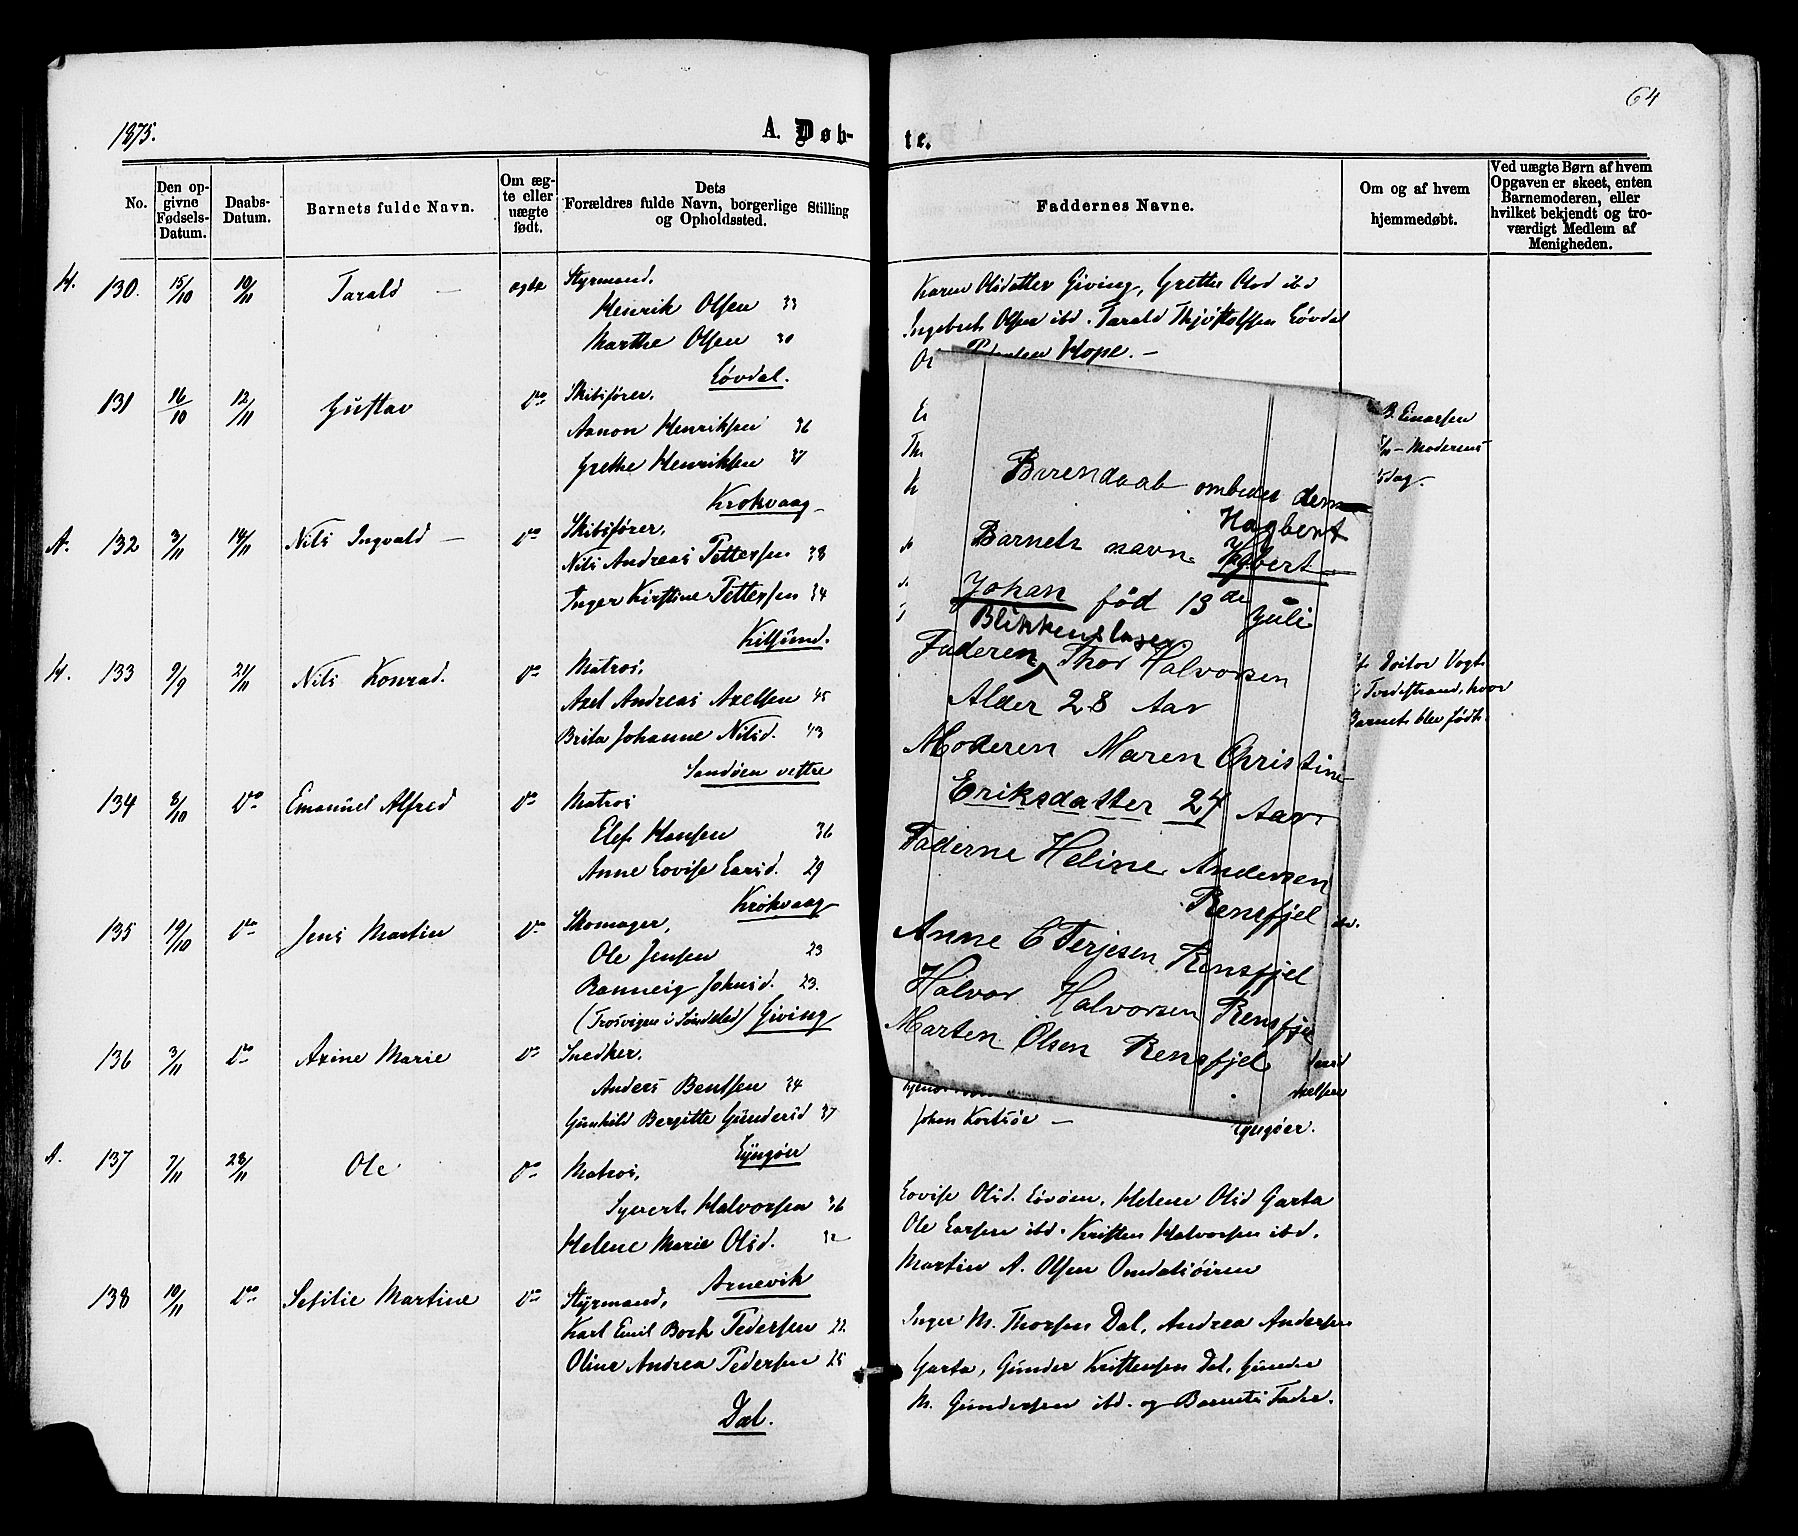 64
1875.
A. Døb-
te.
No.
Den opgivne Fødsels-Datum.
Daabs-Datum.
Barnets fulde Navn.
Om ægte eller uægte født.
Dets
Forældres fulde Navn, borgerlige Stilling
og Opholdssted.
Faddernes Navne.
Om og af hvem
hjemmedøbt.
Ved uægte Børn af hvem
Opgaven er skeet, enten
Barnemoderen, eller
hvilket bekjendt og tro-
værdigt Medlem af
Menigheden.
H. 130. 15/10 10/11 Tarald — ægte Styrmand,
Henrik Olsen 33
Marthe Olsen 30
Løvdal.
Karen Olsdatter Giving, Grethe Olsd ibd
Ingebret Olsen ibd. Tarald Thjøstolfsen Løvdal
Hope. —
131 16/10 12/11 Gustav Do Skibsfører,
Aanon Henriksen 36
Grethe Henriksen 37
Krokvaag
B. Einarsen
Moderens
A. 132 3/11 14/11 Nils Ingvald — Do Skibsfører,
Nils Andreas Pettersen 38
Inger Kirstine Pettersen 34
Kilsund.
H. 133 9/9 21/11 Nils Konrad. Do Matros,
Axel Andreas Axelsen 45
Brita Johanne Nilsd. 43
Sandøen vestre
Doktor Vogt
i Tvedestrand, hvor
Barnet blev født.
134 8/10 Do Emanuel Alfred Do Matros
Elef Hansen 36
Anne Lovise Larsd. 29
Krokvaag
135 19/10 Do Jens Martin Do Skomager,
Ole Jensen 23
Ranneig Johnsd. 23.
(Trosvigen i Søndeled) Giving
136 3/11 Do Axine Marie Do Snedker,
Anders Bentsen 34
Gunhild Bergitte Gundersd 37
Lyngøer
Johan Kortsøe —
Lyngøer.
A. 137 7/11 28/11 Ole Do Matros,
Syvert Halvorsen 36
Helene Marie Olsd. 32
Arnevik
Lovise Olsd. Løvøen, Helene Olsd Garta
Ole Larsen ibd. Kristen Halvorsen ibd.
Martin A. Olsen
138 10/11 Do Sefilie Martine Do Styrmand,
Karl Emil Bork Pedersen 22
Oline Andrea Pedersen 25
Dal.
Inger M. Thorsen Dal, Andrea Andersen
Garta, Gunder Kristensen Dal, Gunder
M. Gundersen ibd. og Barnets Fader.
Barendaab ombedes dem
Hagbert
Barnets navn Hgbert
Johan fød 13de Juli
Blikkenslager
Faderen Thor Halvorsen
Alder 28 Aar
Moderen Maren Christine
Eriksdatter 24 Aar
Faderne Heline Andersen
Rensfjel
Anne C Terjesen Rensfjel
Halvor Halvorsen Rensfje
Marten Olsen Rensfjel